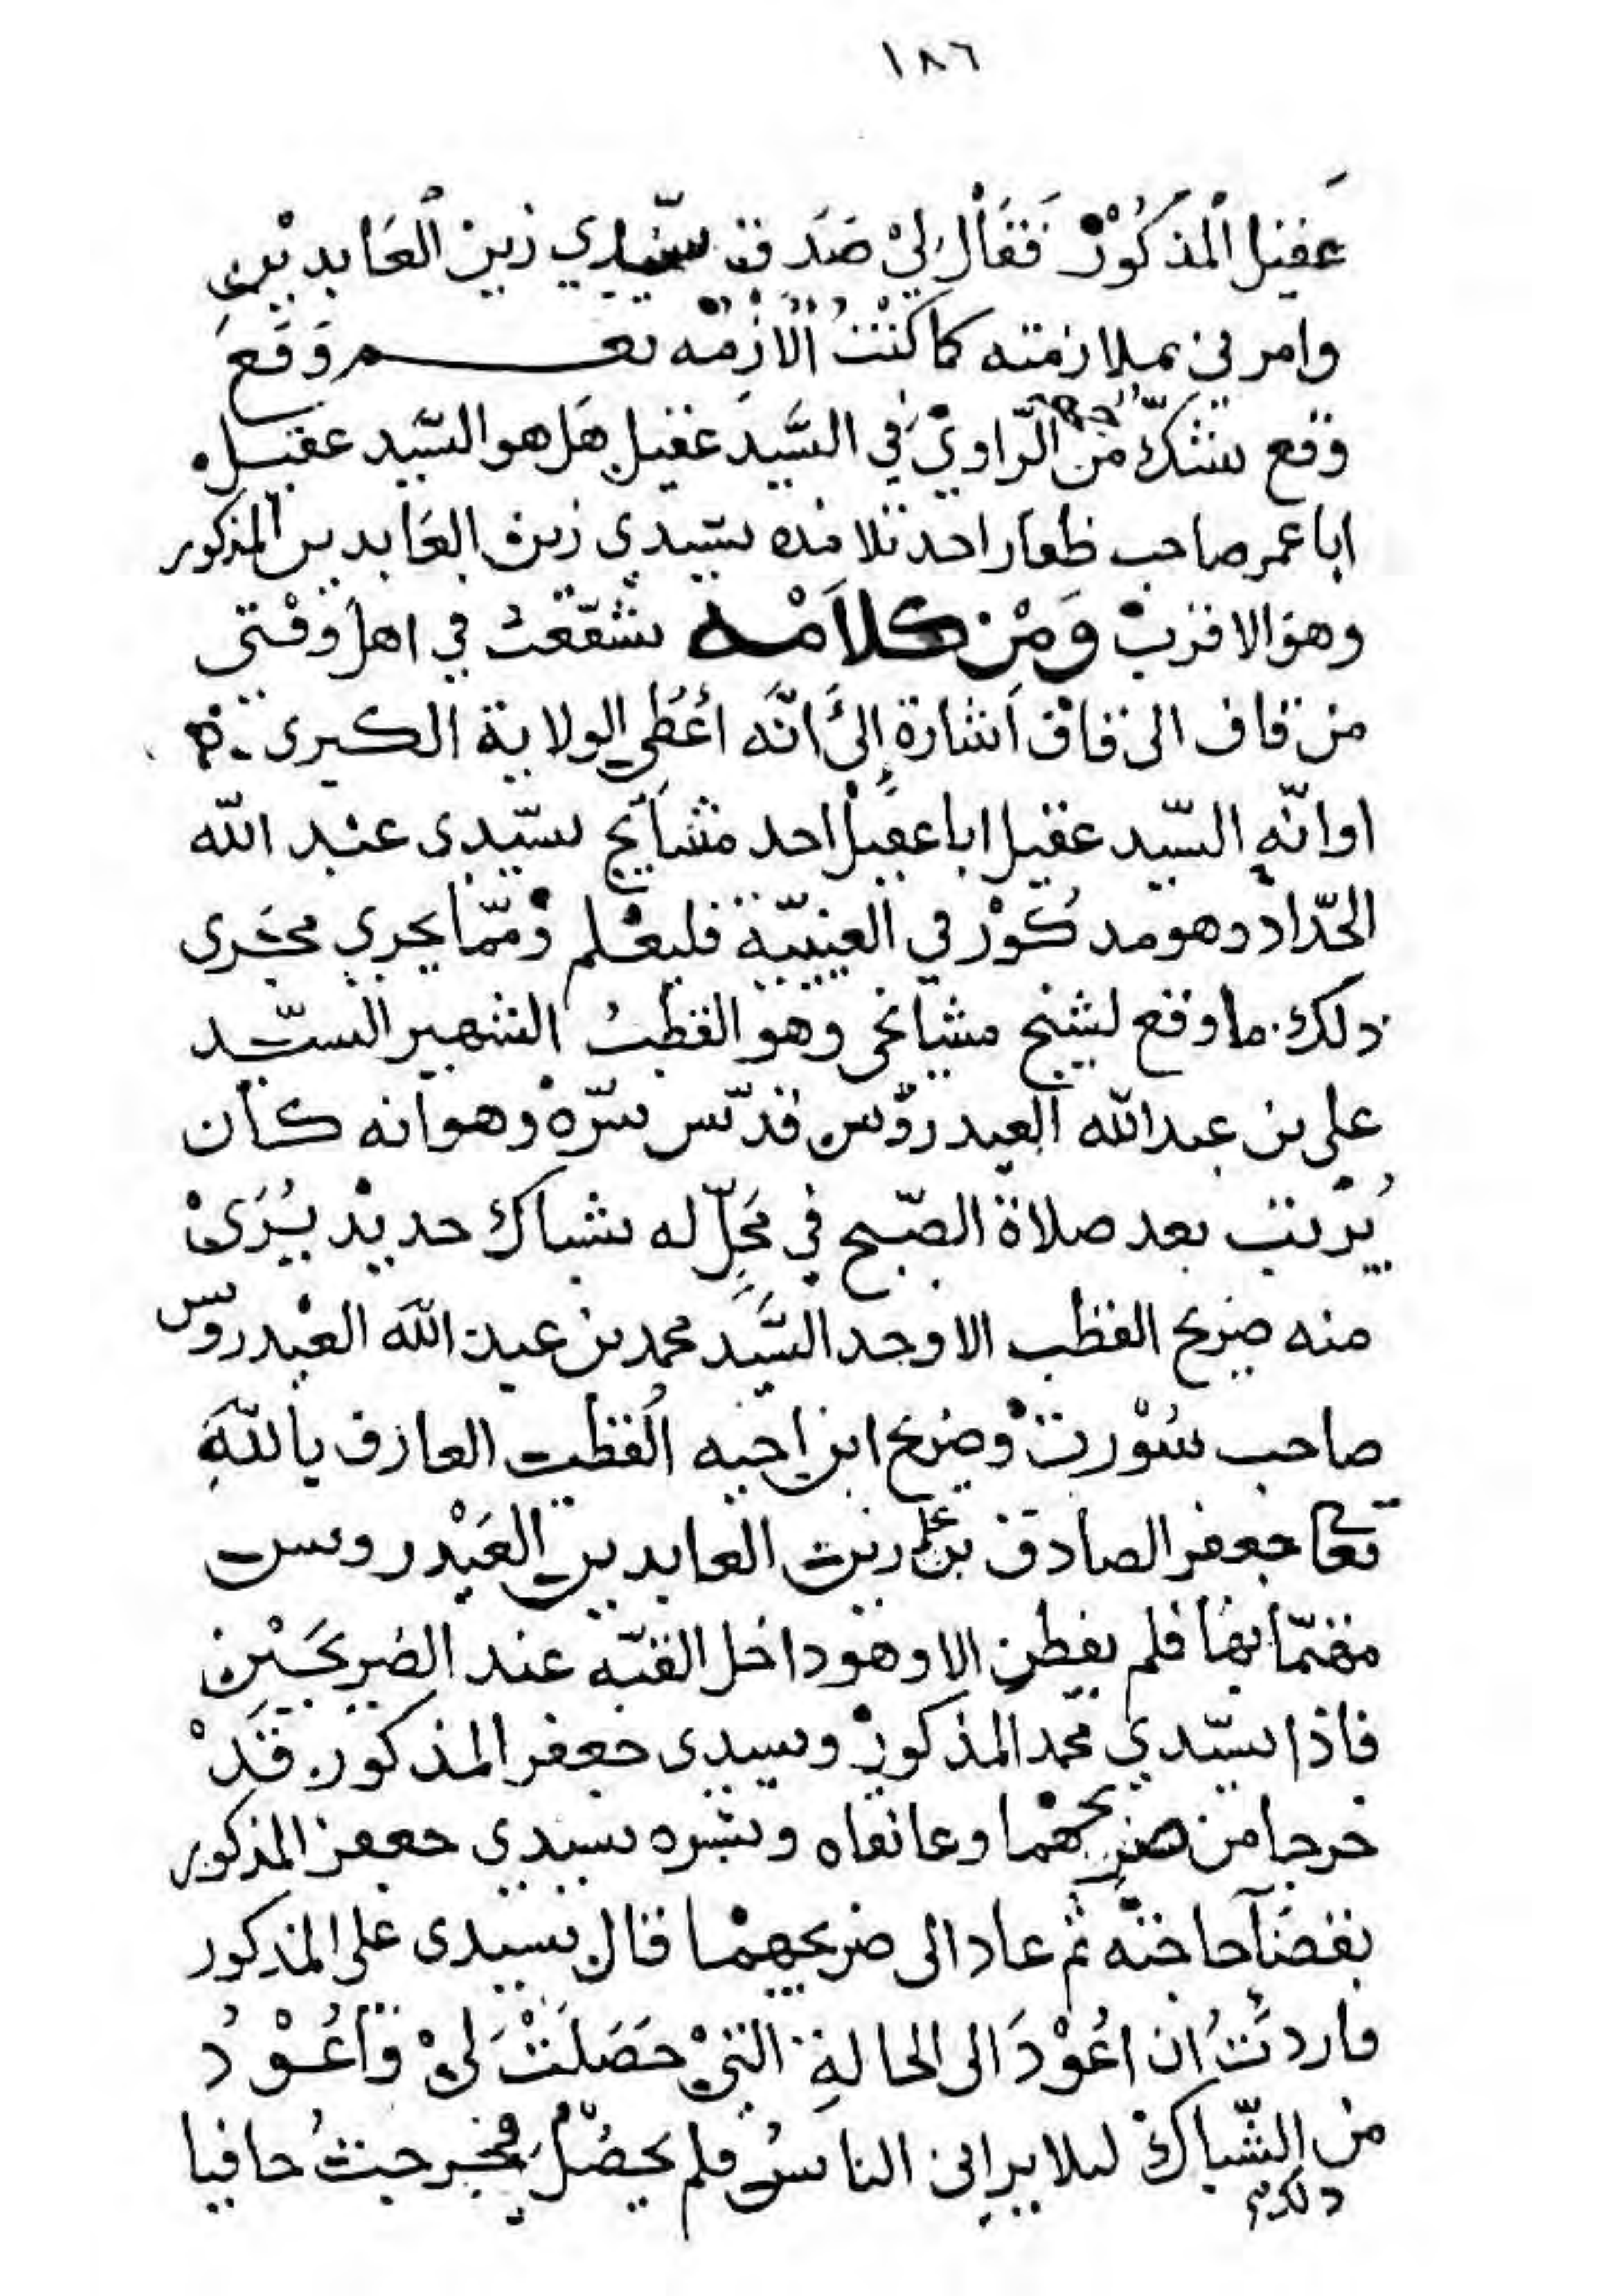 ١٨٦
عقيل المَذكُوْرْ فَقَاْلَ لِيْ صَدَقَ سيّدي زين العَابدين
وامرني بملازمته كما كنْتُ اُلازمْه نعم وَقَعَ
وقع شكّ من الرّاوي في السَّيد عقيل هَل هو السّيد عقيل
ابا عمر صاحب ظفار احد تلامذه سيّدي زين العَابدين المذكور
وهو الاقربْ وَمِنْ كلاَمْه تشفّعتُ في اهل وقْتي
من قاف الى قاف اشارة إلىَ انَّه اُعْطِي الولاية الكبرى
او انّه السّيد عقيل ابا عقيل احد مشايخ سيّدي عبد الله
الحدّاد وهو مذكُوْر في العينيّة فليعْلم وْممّا يجري مجَرى
ذلك ما وقع لشيخ مشائخي وهو القطبُ الشهير السّيد
علي بن عبدالله العيدروس قدّس سرّهْ وهو انه كان
يُرتب بعد صلاة الصّبح في مَحِلّ له شباك حديدْ يُرَىْ
منه ضريح القطب الاوحد السَّيد محمد بن عبد اللهَ العيْدروس
صاحب سُوْرتْ وضريح ابن اخيه القطب العارف باللهَِ
تعالى جعفر الصادق بن علي زين العابدين العَيْدروس
مهتمّا بهَا فلم يفطن الا وهو داخل القبّه عند الضريحَيْن
فاذا سيّدي محمد المذكورْ وسيدي جعفر المذكور قَدْ
خرجا من ضريحهْما وعانقاه وبشره سيدي جعفر المذكور
بقضَآ حاجته ثم عادا الى ضريحهمْا قال سيدي علي المذكور
فاردتُ ان اعُوْدَ الى الحالةِ التيْ حَصَلَتْ لَيْ وَأعُوْدُ
من الشّباك ليلا يراني الناسُ فلم يحصْلْ ذلك فخرجتُ حافيا